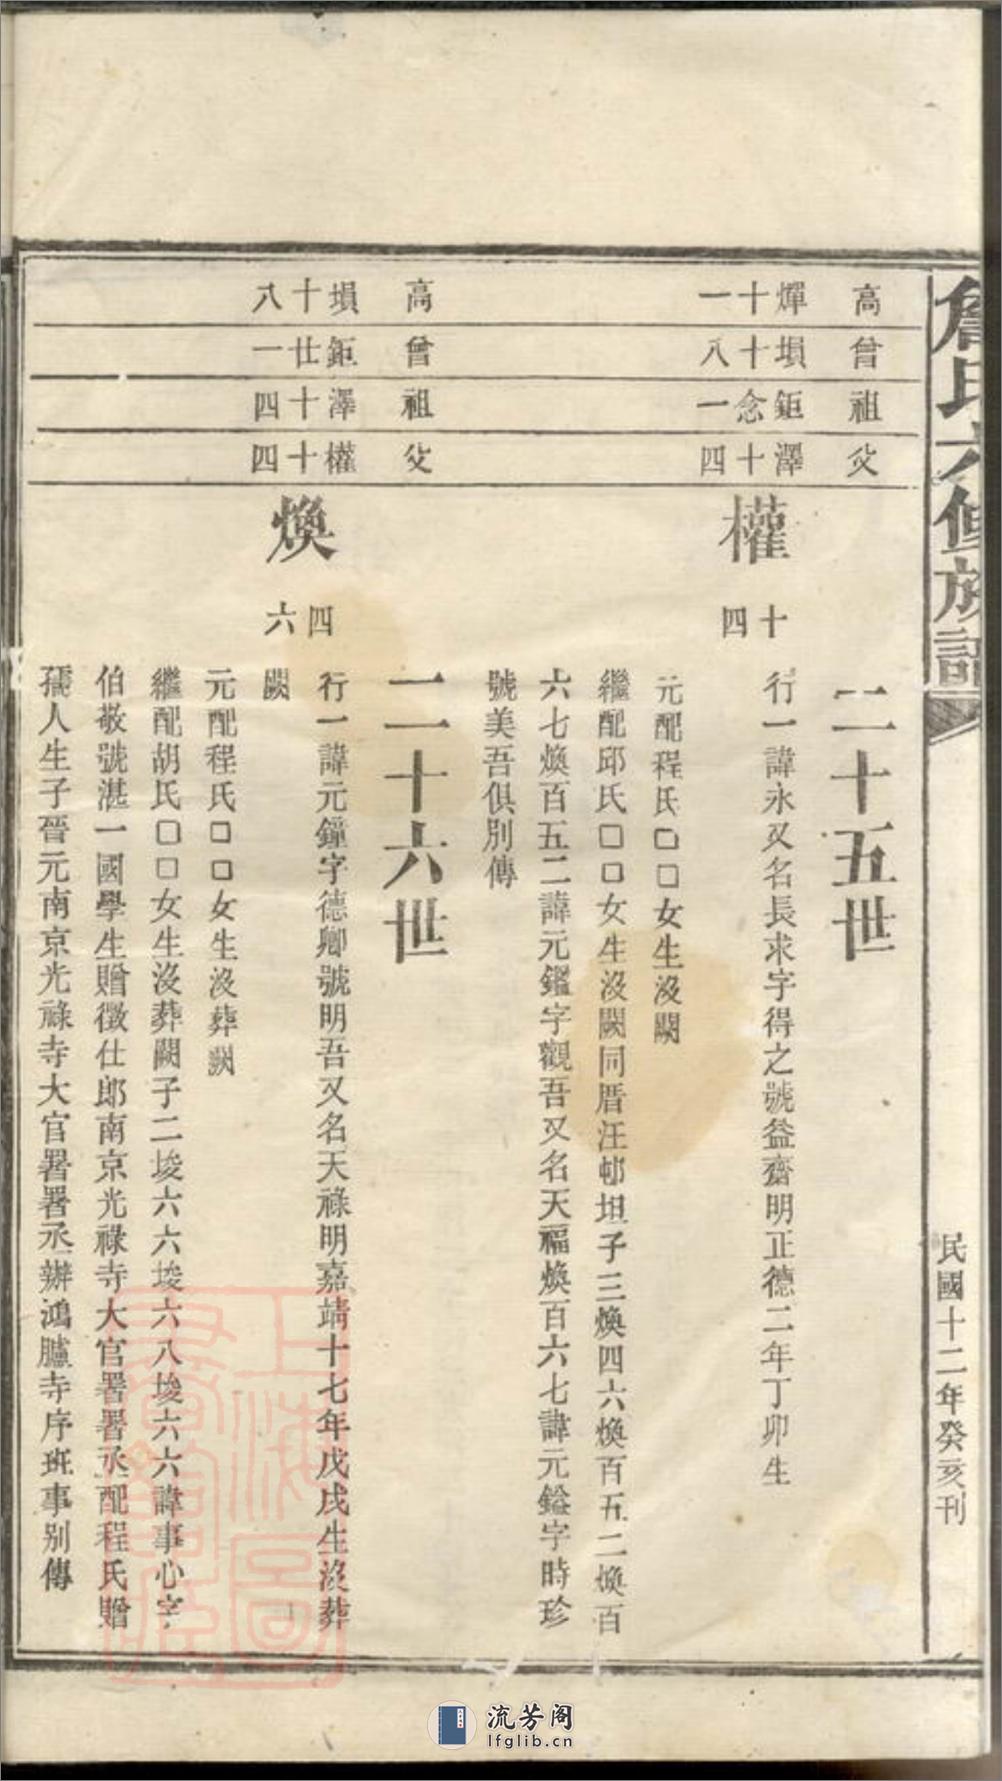 詹氏六修族譜
民國十二年癸亥刊
高 煇十一
曾 塤十八
祖 鉅念一
父 澤十四
二十五世
權 十四
行一諱永又名長求字得之號益齋明正德二年丁卯生
元配程氏□□女生沒闕
繼配邱氏□□女生沒闕同厝汪邨坦子三煥四六煥百五二煥百
六七煥百五二諱元鑑字觀吾又名天福煥百六七諱元鎰字時珍
號美吾俱別傳
高 塤十八
曾 鉅廿一
祖 澤十四
父 權十四
二十六世
煥 四六
行一諱元鐘字德卿號明吾又名天祿明嘉靖十七年戊戌生沒葬
闕
元配程氏□□女生沒葬闕
繼配胡氏□□女生沒葬闕子二埈六六埈六八埈六六諱事心字
伯敬號湛一國學生贈徵仕郎南京光祿寺大官署署丞配程氏贈
孺人生子晉元南京光祿寺大官署署丞辦鴻臚寺序班事别傳
上海圖書館藏
流芳阁
lfglib.cn